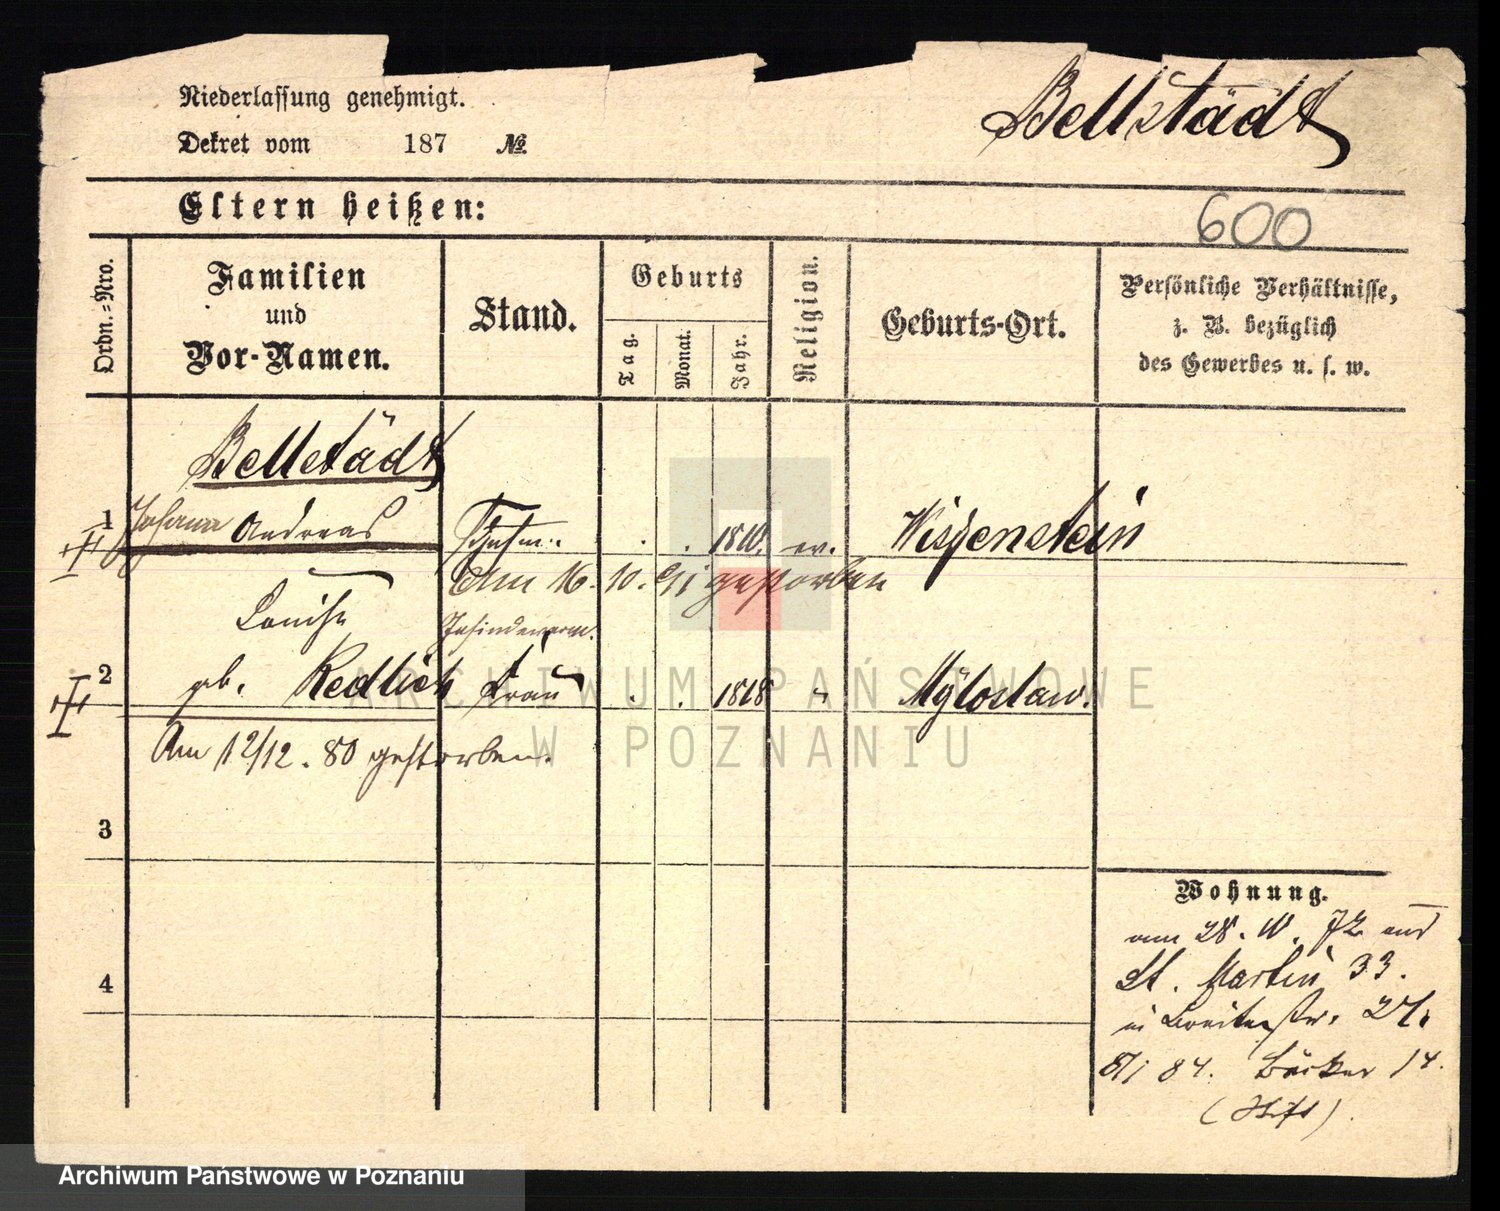 Niederlassung genehmigt.
Bellstädt
Dekret vom 187 №
Eltern heißen:
600
Ordn.-Nro.
Familien
und
Vor-Namen.
Stand.
Geburts
Tag.
Monat.
Jahr.
Religion.
Geburts-Ort.
Persönliche Verhältnisse,
z. B. bezüglich
des Gewerbes u. s. w.
Bellstädt
1 Johann Andreas 1810. ev.
Am 16. 10. 91 gestorben
Louise
2 geb. Redlich Frau 1818 " Myloslaw.
Am 12/12. 80 gestorben.
3
4
Wohnung.
am 28. 10. 72 aus
St. Martin 33.
in Breitestr. 27.
84. Bäcker 14.
(Stift).
ARCHIWUM PAŃSTWOWE
W POZNANIU
Archiwum Państwowe w Poznaniu